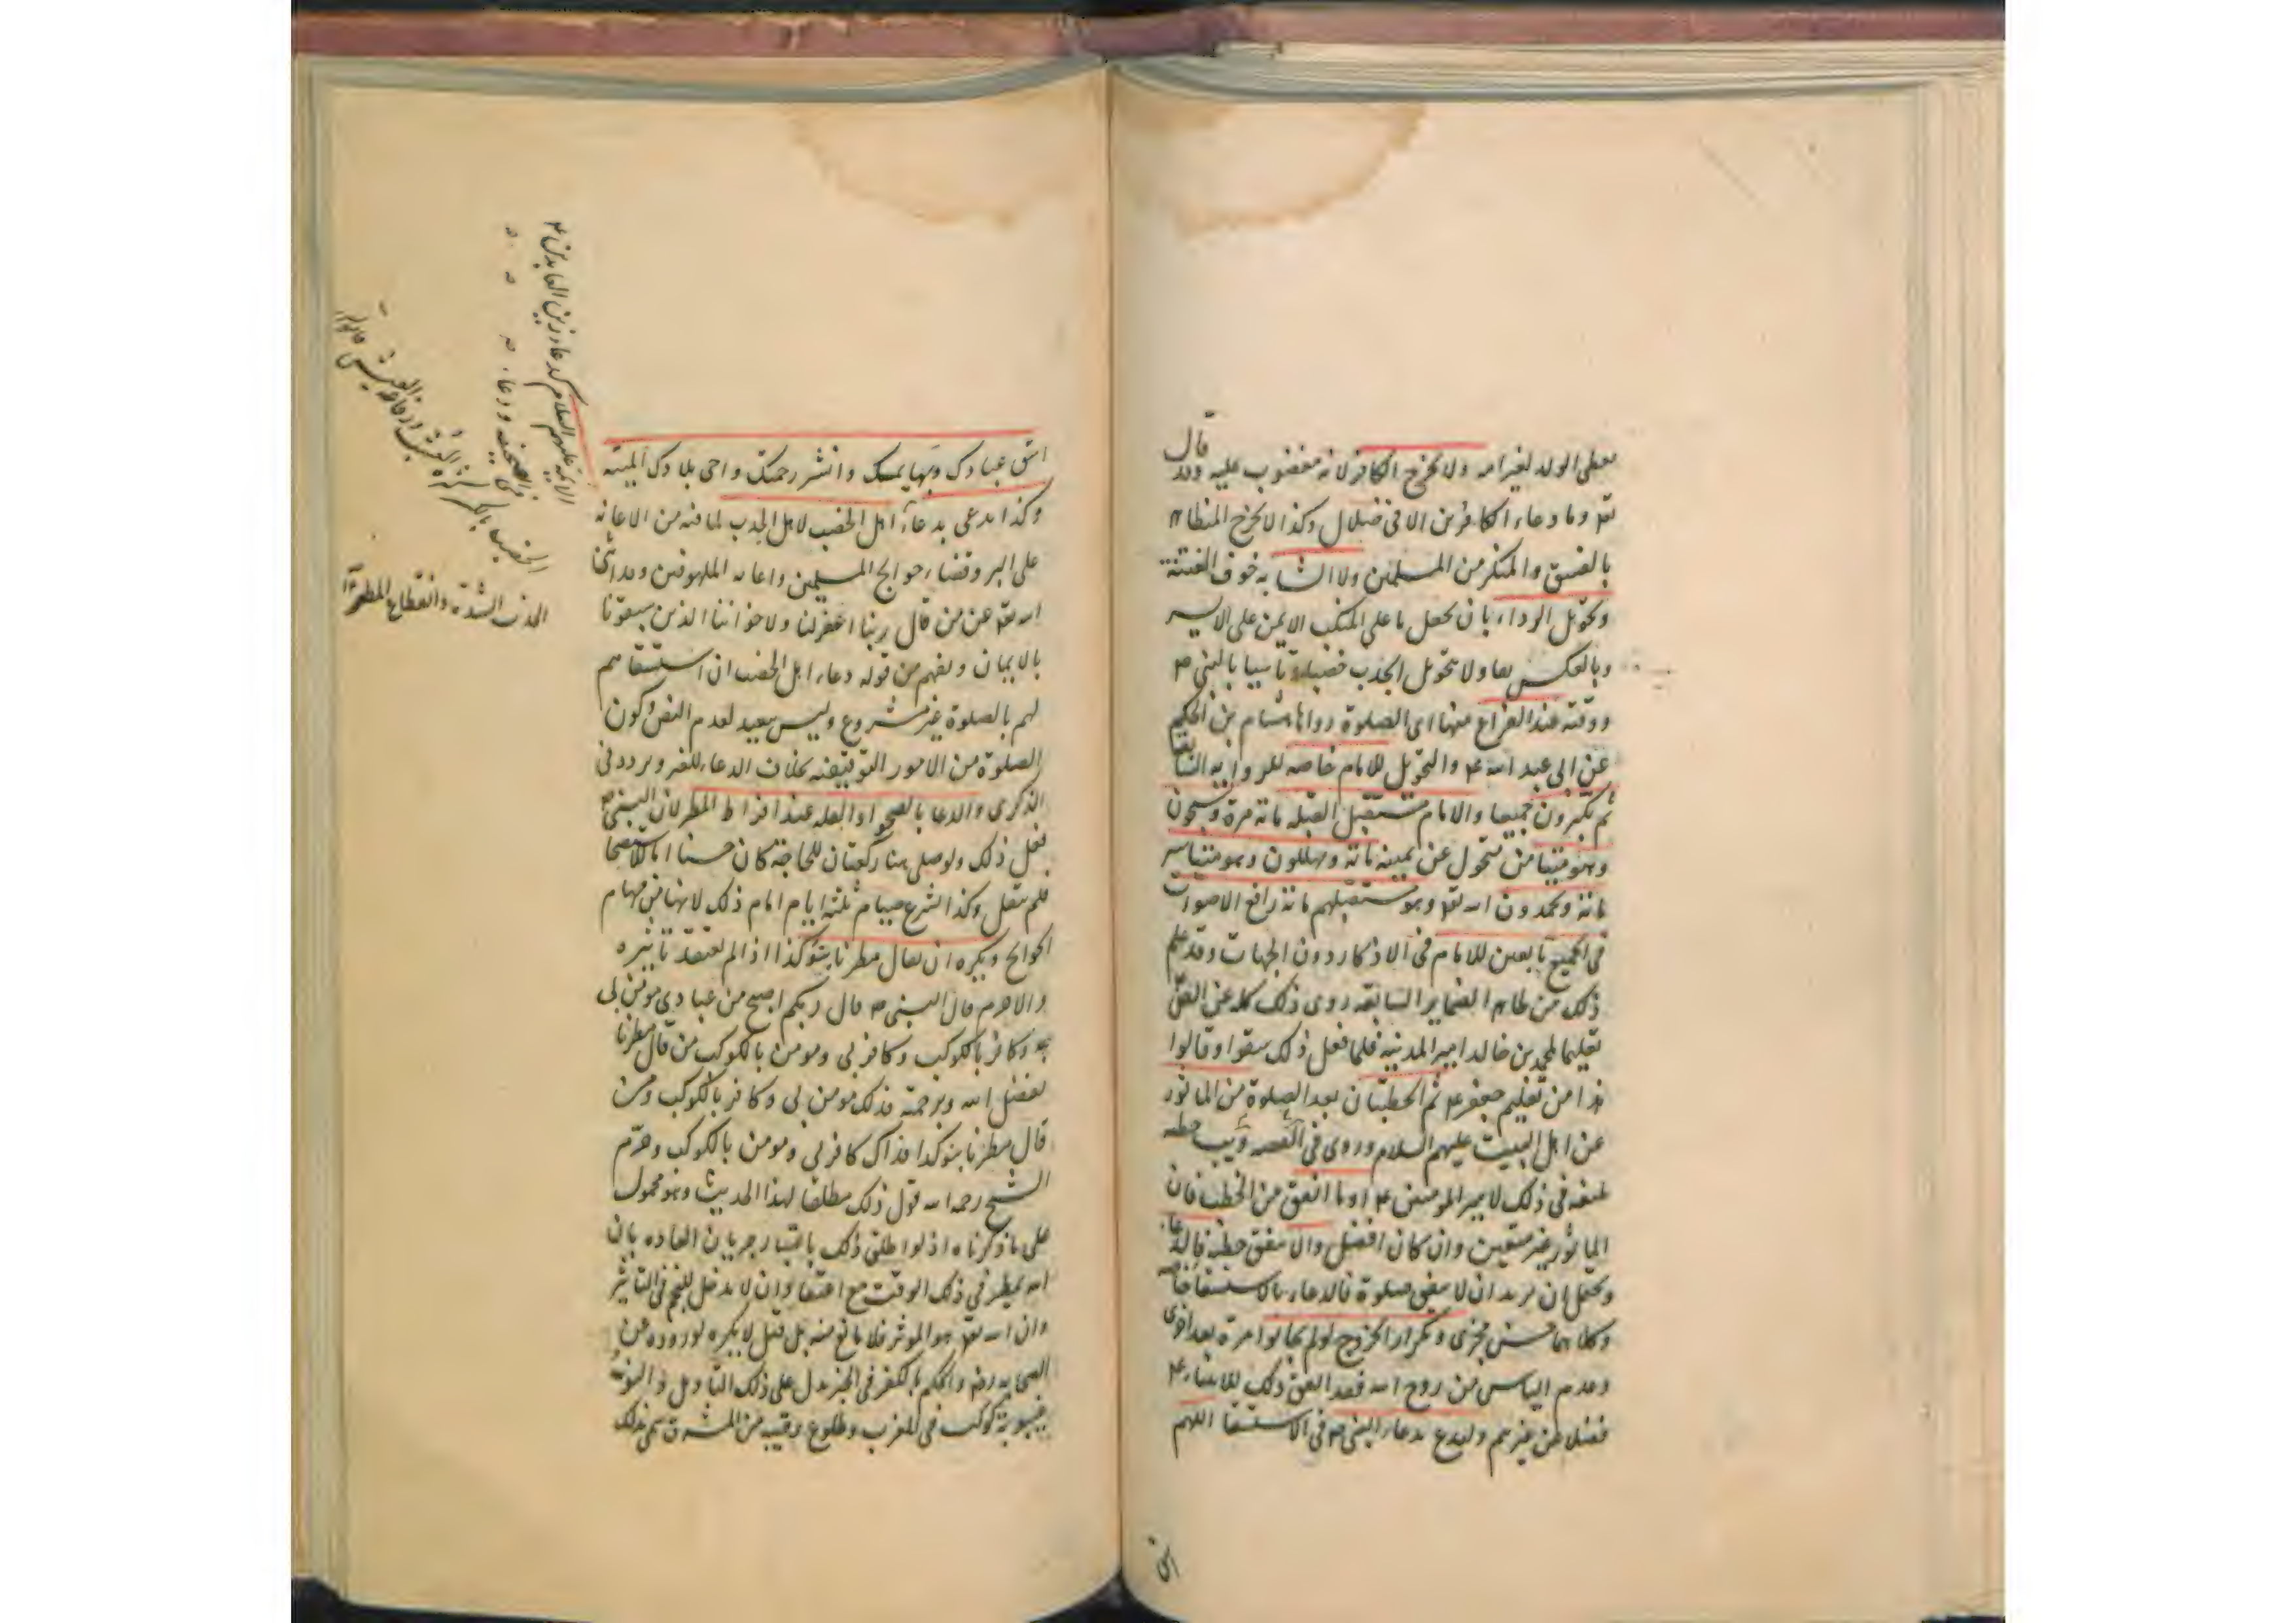 يعطى الولد لغير امه ولا يخرج الكافر لانه مغضوب عليه وقد قال
تعه وما دعاء الكافرين الا فى ضلال وكذا لا يخرج المتظاهر
بالفسق والمنكر من المسلمين ولا الشابه خوف الفتنة
وتحويل الرداء بان يجعل ما على المنكب الايمن على الايسر
وبالعكس ولا تحويل الجذب تاسيا بالنبى ص
ووقته عند الفراغ منها اى الصلوة رواها هشام بن الحكم
عن ابى عبد الله ع والتحويل للامام خاصه للروايه السابقة
ثم يكبرون جميعا والامام مستقبل القبله مائه مرة ويسبحون
وهو متيامن متحول عن يمينه مائه ويهللون وهو متياسر
مائة ويحمدون الله تعه وهو مستقبلهم مائة رافع الاصوات
فى الجميع تابعين للامام فى الاذكار دون الجهات وقد علم
ذلك من ظاهر الضماير السابقه روى ذلك كله عن الصق
تعليما لمحمد بن خالد امير المدينه فلما فعل ذلك سقوا وقالوا
هذا من تعليم جعفر ع ثم الخطبتان بعد الصلوة من الماثور
عن اهل البيت عليهم السلام وروى فى خطبه
بليغه فى ذلك لامير المومنين ع او ما اتفق من الخطب فان
الماثور غير متعين وان كان افضل والا يتفق خطبه فالدعاء
ويحتمل ان يريد ان لا يتفق صلوة فالدعاء بالاستسقا خاصه
وكلاهما حسن مجزى وتكرار الخروج لو لم يجابوا مرة بعد اخرى
وعدم الياس من روح الله فقد اتفق ذلك للانبياء ع
فضلا عن غيرهم وليدع بدعاء النبى ص فى الاستسقا اللهم
اسق
اسق عبادك وبهايمك وانشر رحمتك واحى بلادك الميته
وكذا يدعى بدعاء اهل الخصب لاهل الجدب لما فيه من الاعانه
على البر وقضاء حوايج المسلمين واعانه الملهوفين وقد اثنى
الله تعه عن من قال ربنا اغفر لنا ولاخواننا الذين سبقونا
بالايمان ويفهم من قوله دعاء اهل الخصب ان استسقاهم
لهم بالصلوة غير مشروع وليس ببعيد لعدم النص وكون
الصلوة من الامور التوقيفيه بخلاف الدعاء للغير وتردد فى
الذكرى والدعا بالصحو او القله عند افراط المطر لان النبى ص
فعل ذلك ولو صلى هنا ركعتان للحاجة كان حسنا اما للاستصحا
فلم تنقل وكذا الشرع صيام ثلثة ايام امام ذلك لانها من مهام
الحوائج ويكره ان يقال مطرنا بنوء كذا اذا لم يعتقد تاثيره
والا حرم قال النبى ص قال ربكم اصبح من عبادى مومن بى
وكافر بالكوكب وكافر بى ومومن بالكوكب من قال مطرنا
بفضل الله وبرحمته فذلك مومن بى وكافر بالكوكب ومن
قال مطرنا بنوء كذا فذاك كافر بى ومومن بالكوكب وحرم
الشيخ رحمه الله قول ذلك مطلقا لهذا الحديث وهو محمول
على ما ذكرناه اذ لو اطلق ذلك باعتبار جريان العاده بان
الله يمطر فى ذلك الوقت مع اعتقاد ان لا مدخل للنجم فى التاثير
وان الله تعه هو الموثر فلا مانع منه بل قيل لا يكره لوروده عن
الصحابه رض والحكم بالكفر فى الخبر يدل على ذلك التاويل والنوء
غيبوبة كوكب فى المغرب وطلوع رقيبه من المشرق سمى بذلك
الائمة عليهم السلام كدعاء زين العابدين ع
فى الصحيفه ودعاء
الخصب بالكسر
الجدب الشدة وانقطاع المطر